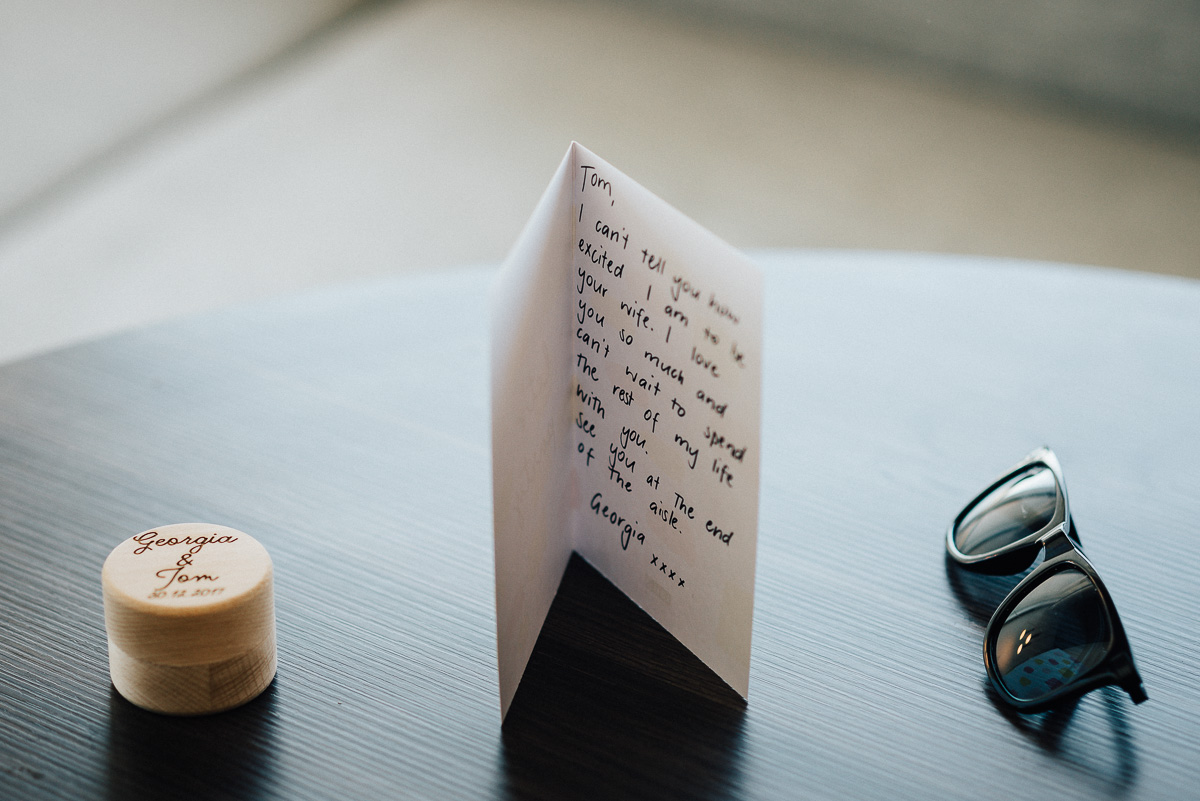 Tom,
I can't tell you how
excited I am to be
your wife. I love
you so much and
can't wait to spend
the rest of my life
with you.
see you at the end
of the aisle.
Georgia xxxx
Georgia
&
Tom
30.12.2017